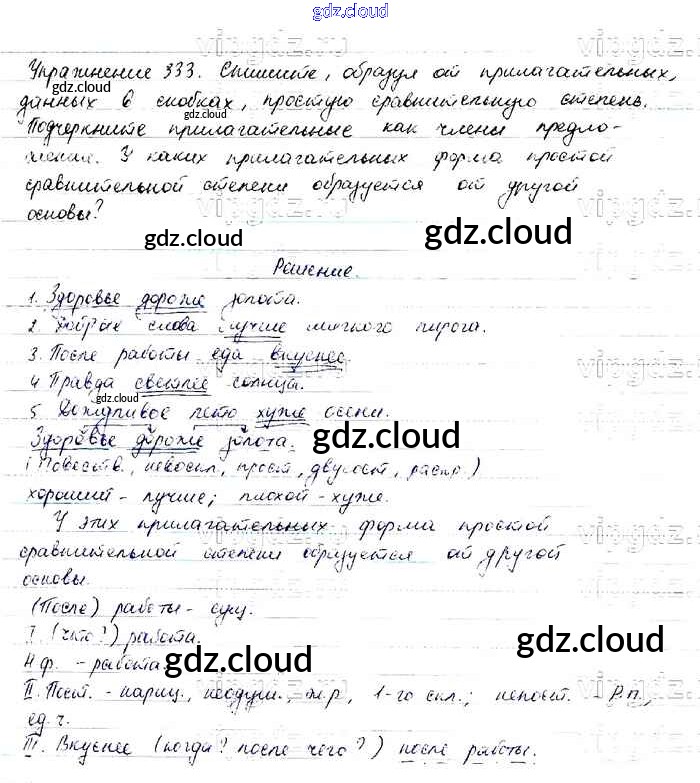 gdz.cloud
Упражнение 333. Спишите, образуя от прилагательных,
данных в скобках, простую сравнительную степень.
Подчеркните прилагательные как члены предло-
жения. У каких прилагательных форма простой
сравнительной степени образуется от другой
основы?
Решение.
1. Здоровье дороже золота.
2. Добрые слова лучше мягкого пирога.
3. После работы еда вкуснее.
4. Правда светлее солнца.
5. Дождливое лето хуже осени.
Здоровье дороже золота.
(Повеств., невоскл., прост., двусост., распр.)
хороший - лучше; плохой - хуже.
У этих прилагательных форма простой
сравнительной степени образуется от другой
основы.
(После) работы - сущ.
I. (что?) работа.
Н.ф. - работа.
II. Пост. - нариц., неодуш., ж.р, 1-го скл.; непост. - Р.п.,
ед.ч.
III. Вкуснее (когда? после чего?) после работы.